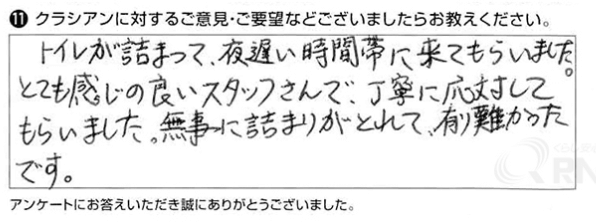 ⓫ クラシアンに対するご意見・ご要望などございましたらお教えください。
トイレが詰まって、夜遅い時間帯に来てもらいました。
とても感じの良いスタッフさんで、丁寧に応対して
もらいました。無事に詰まりがとれて、有難かった
です。
アンケートにお答えいただき誠にありがとうございました。